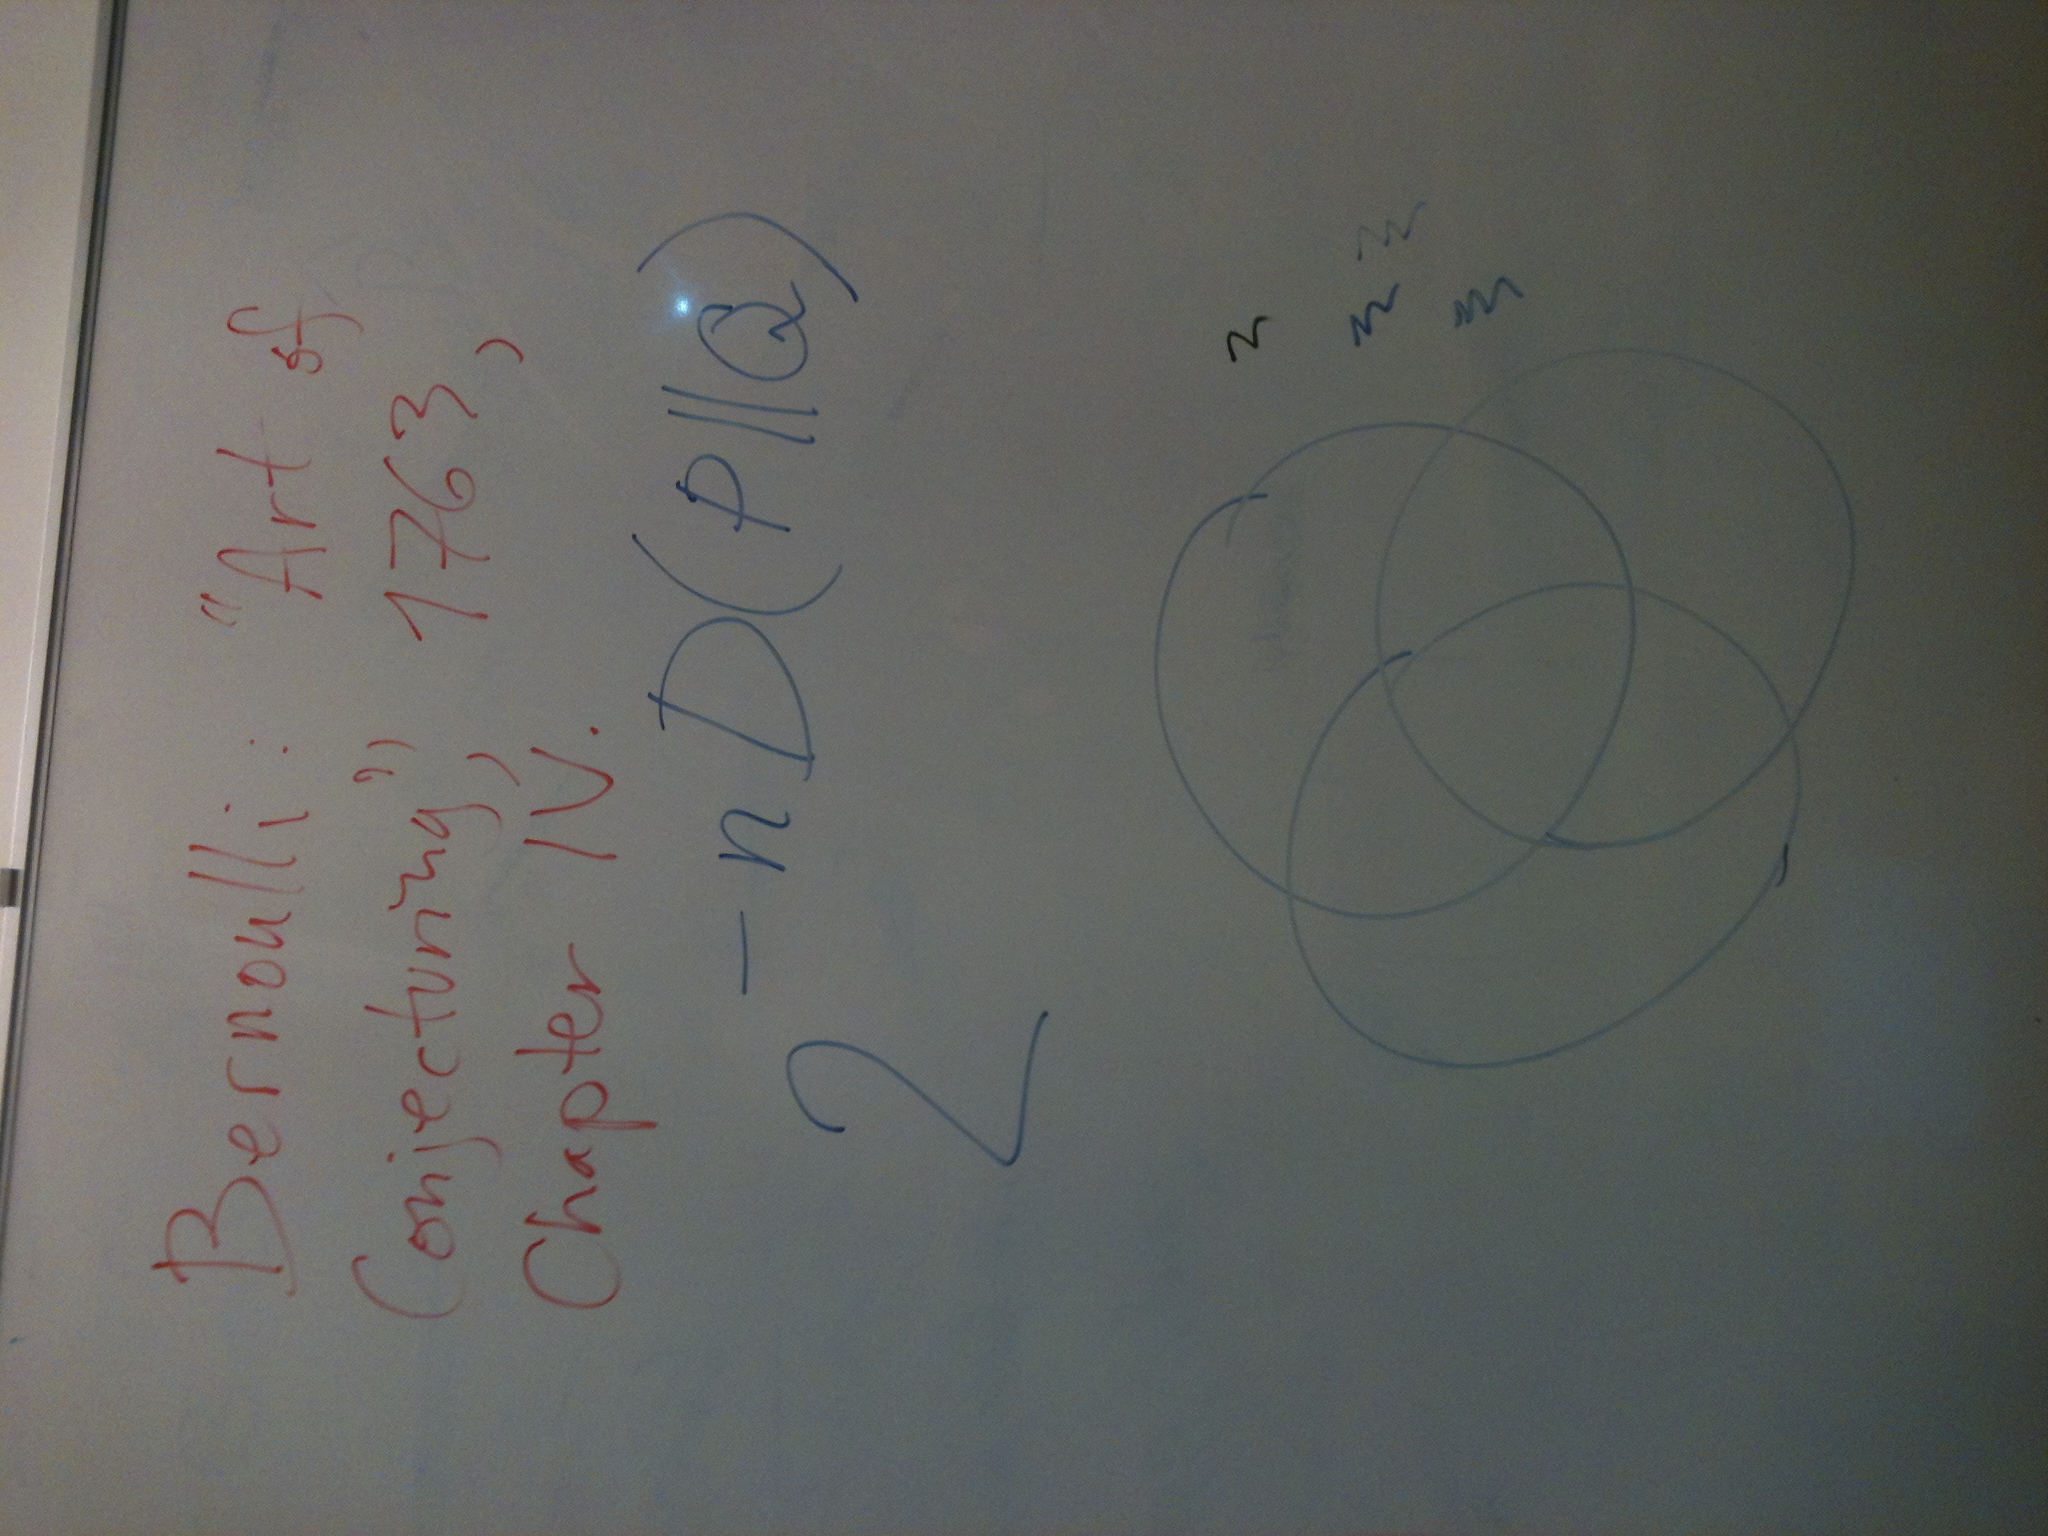 Bernoulli: "Art of
Conjecturing", 1763,
Chapter IV.
2^{-nD(P||Q)}